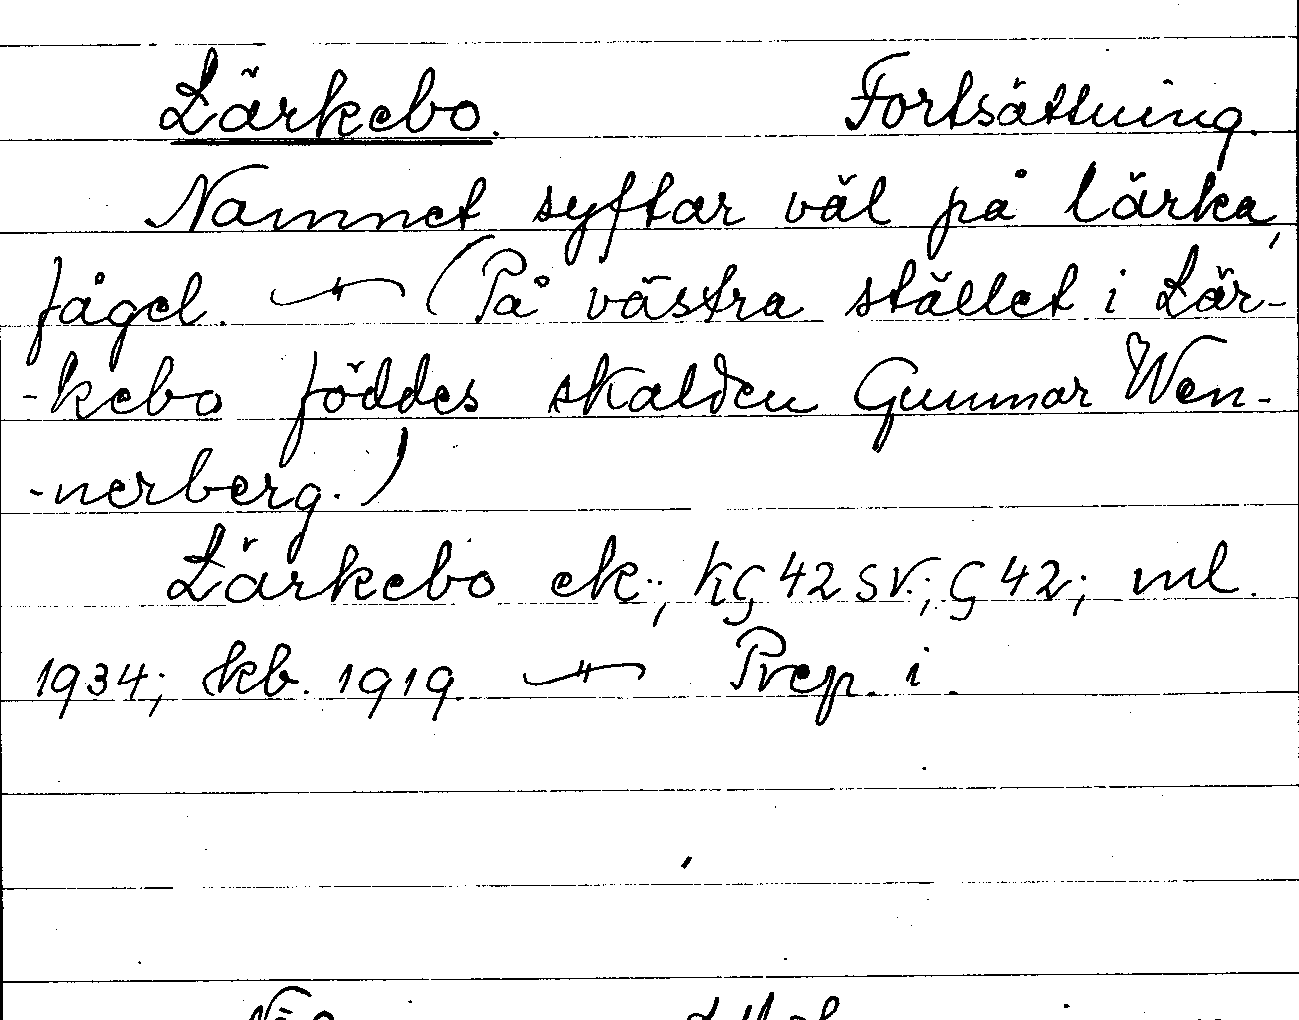 Lärkebo. Fortsättning.
Namnet syftar väl på lärka,
fågel. — (På västra stället i Lär-
-kebo föddes skalden Gunnar Wen-
-nerberg.)
Lärkebo ek.; KG 42 SV.; G 42; ml.
1934; kb. 1919. — Prep. i.